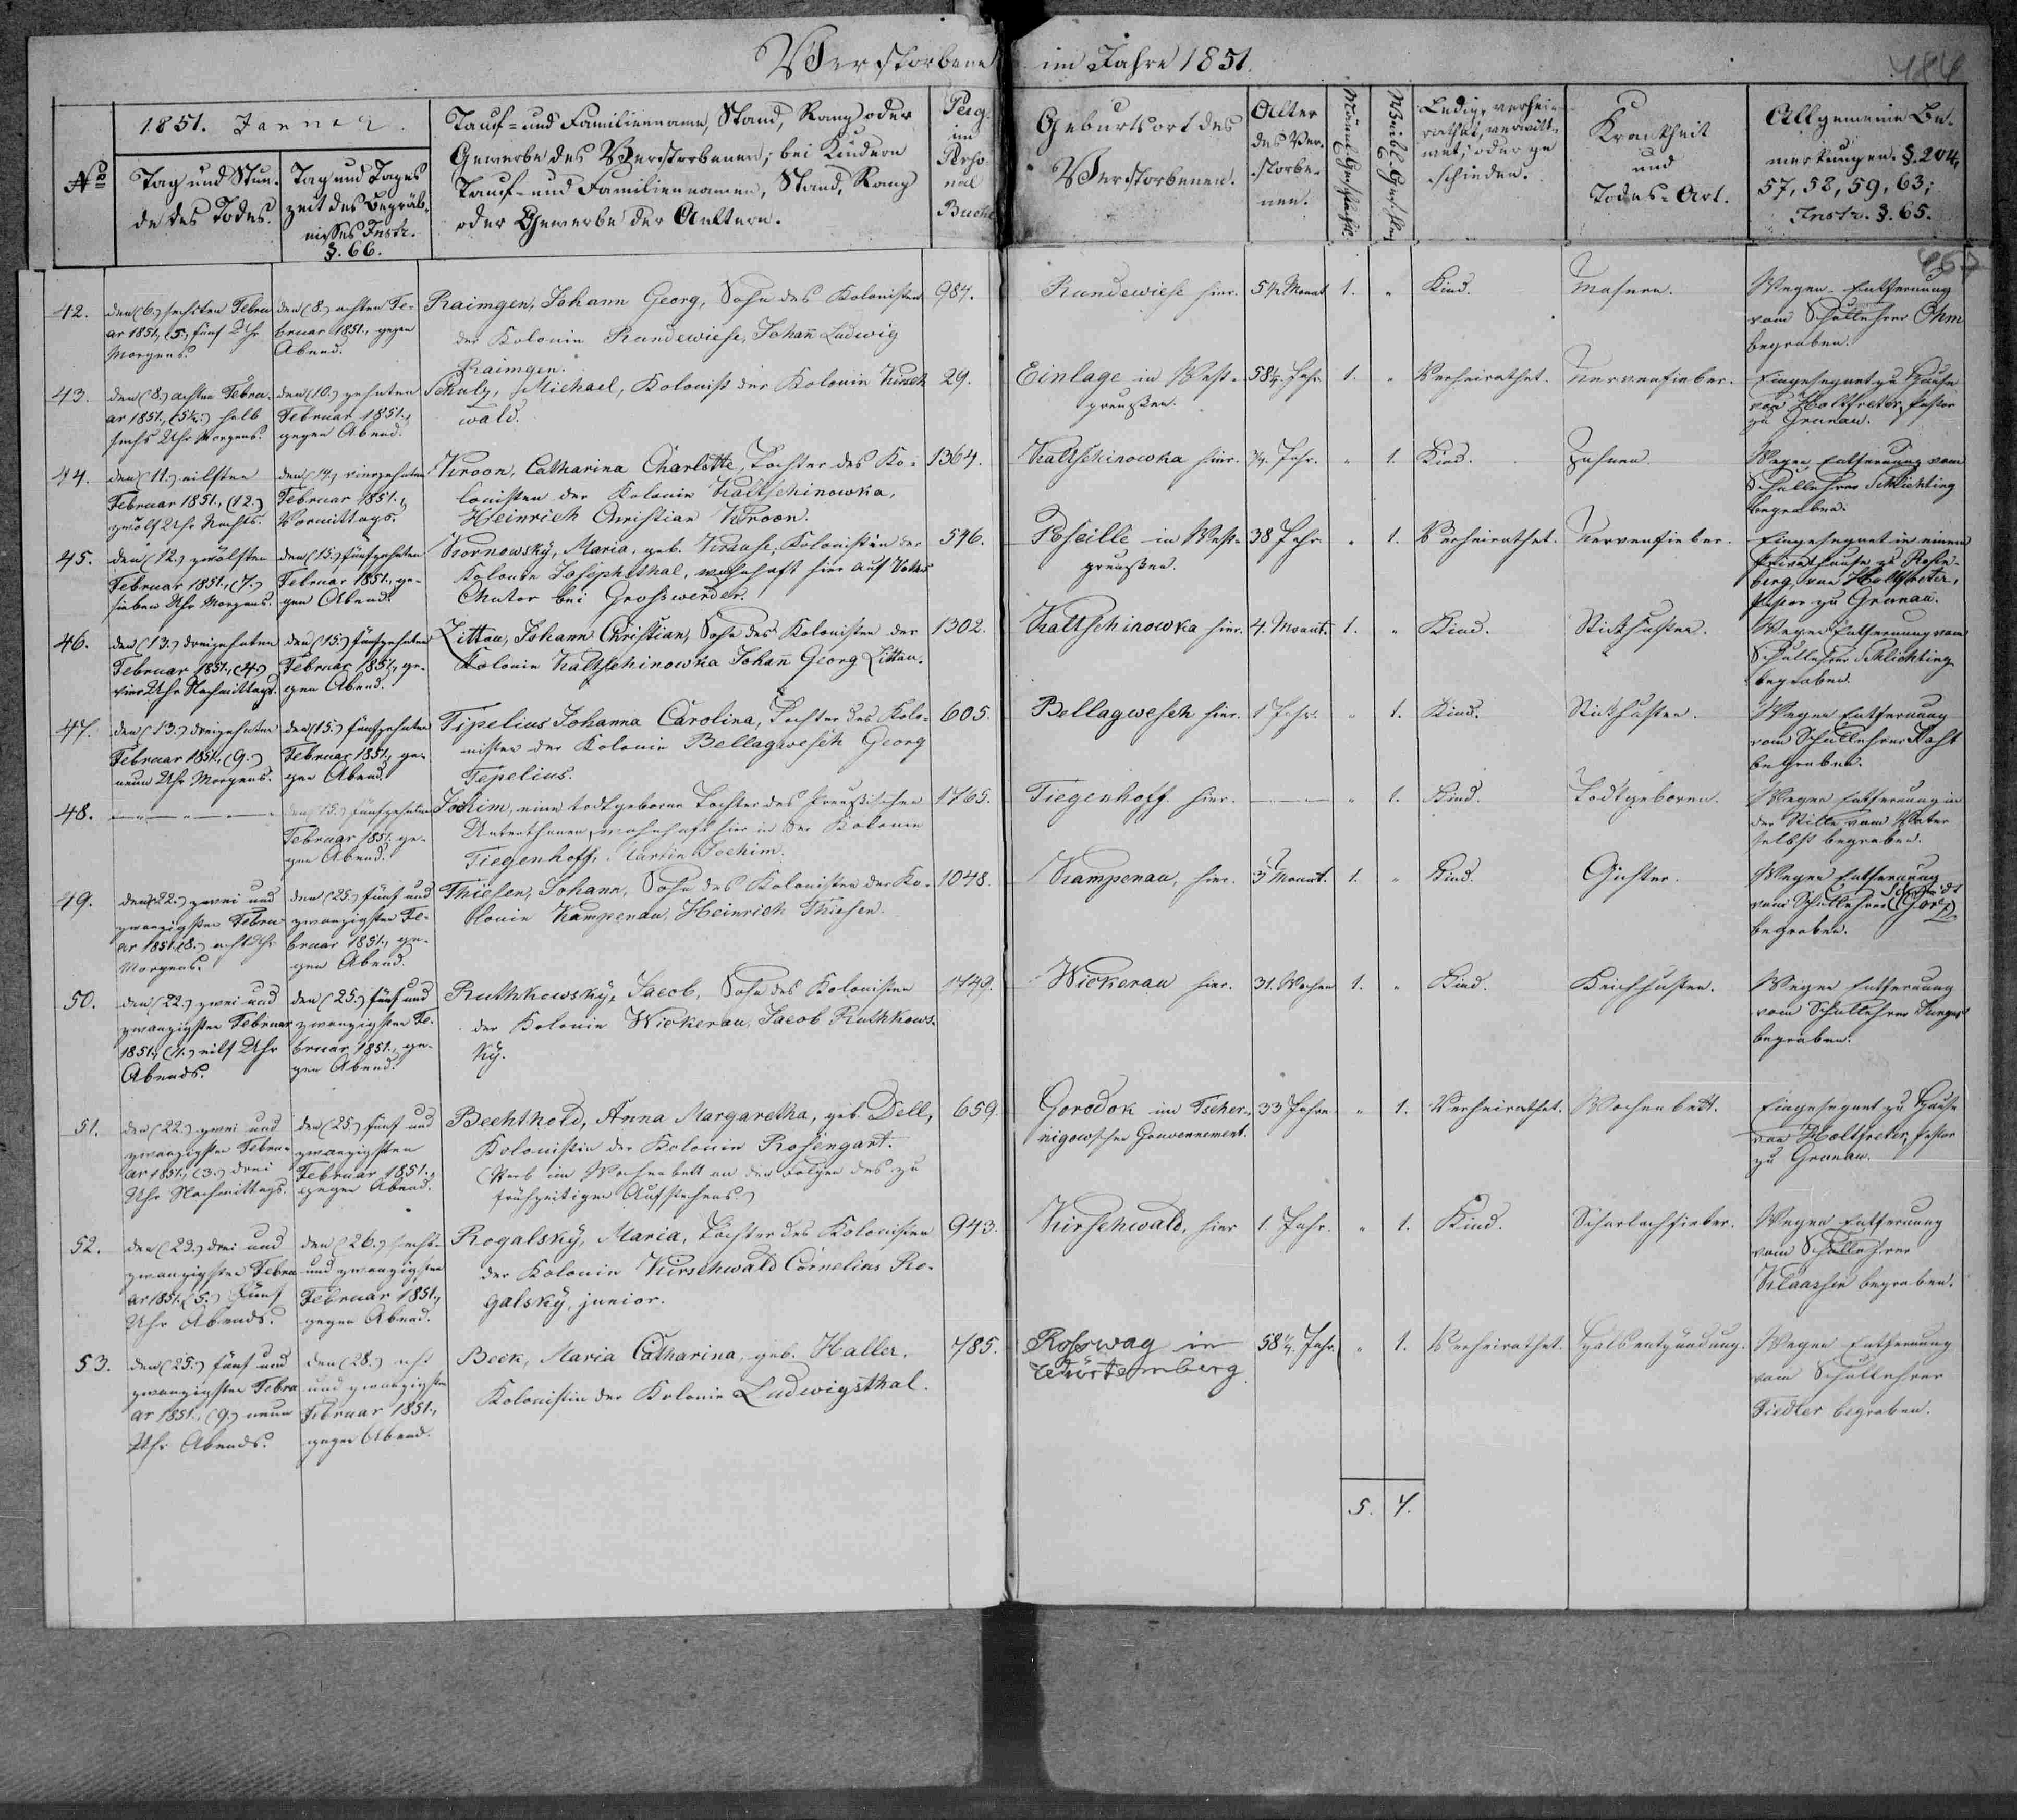 Verstorbene im Jahre 1851.
484
No
1851. Januar.
Tag und Stun-
de des Todes.
Tag und Tages
zeit des Begräb-
nisses Instr.
§. 66.
Tauf- und Familienname, Stand, Rang oder
Gewerbe des Verstorbenen; bei Kindern
Tauf- und Familiennamen, Stand, Rang
oder Gewerbe der Aeltern.
Pag.
im
Perso
nal
Buche
Geburtsort des
Verstorbenen.
Alter
des Ver-
storbe-
nen.
Männl. Geschlecht.
Weibl. Geschlecht
Ledig, verhei-
rathet, verwitt-
wet, oder ge
schieden.
Krankheit
und
Todes-Art.
Allgemeine Be-
merkungen. §. 204,
57, 58, 59, 63;
Instr. §. 65.
467
42.
den (6.) sechsten Febru
ar 1851., (5.) fünf Uhr
Morgens.
den (8.) achten Fe-
bruar 1851., gegen
Abend.
Raimgen, Johann Georg, Sohn des Kolonisten
der Kolonie Rundewiese, Johann Ludwig
Raimgen.
984.
Rundewiese hier.
5½ Monat
1.
"
Kind.
Masern.
Wegen Entfernung
vom Schullehrer Ohm
begraben.
43.
den (8.) achten Febru-
ar 1851., (5½.) halb
sechs Uhr Morgens.
den (10.) zehnten
Februar 1851.,
gegen Abend.
Schulz, Michael, Kolonist der Kolonie Kirsch
wald.
29.
Einlage in West-
preußen.
58¼. Jahr
1.
"
Verheirathet.
Nervenfieber.
Eingesegnet zu Hause
von Holtfreter, Pastor
zu Grunau.
44.
den (11.) eilften
Februar 1851., (12.)
zwölf Uhr Nachts.
den (14.) vierzehnten
Februar 1851.,
Vormittags.
Kroon, Catharina Charlotte, Tochter des Ko-
lonisten der Kolonie Kaltschinowka,
Heinrich Christian Kroon.
1364.
Kaltschinowka hier.
¾. Jahr.
"
1.
Kind.
Zahnen.
Wegen Entfernung vom
Schullehrer Schlichting
begraben.
45.
den (12.) zwölften
Februar 1851., (7.)
sieben Uhr Morgens.
den (15.) fünfzehnten
Februar 1851., ge-
gen Abend.
Kornowsky, Maria, geb. Krause, Kolonistin der
Kolonie Josephsthal, wohnhaft hier auf
Chutor bei Grosswerder.
546.
in West-
preußen.
38 Jahr.
"
1.
Verheirathet.
Nervenfieber.
Eingesegnet in einem
Privathause zu Rosen-
berg von Holtfreter,
Pastor zu Grunau.
46.
den (13.) dreizehnten
Februar 1851., (4.)
vier Uhr Nachmittags.
den (15.) fünfzehnten
Februar 1851., ge-
gen Abend.
Littau, Johann Christian, Sohn des Kolonisten der
Kolonie Kaltschinowka Johann Georg Littau.
1302.
Kaltschinowka hier.
4. Monat.
1.
"
Kind.
Stickhusten.
Wegen Entfernung vom
Schullehrer Schlichting
begraben.
47.
den (13.) dreizehnten
Februar 1851., (9.)
neun Uhr Morgens.
den (15.) fünfzehnten
Februar 1851., ge-
gen Abend.
Tipelius Johanna Carolina, Tochter des Kolo-
nisten der Kolonie Bellagwesch Georg
Tepelius.
605.
Bellagwesch hier.
1 Jahr.
"
1.
Kind.
Stickhusten.
Wegen Entfernung
vom Schullehrer
begraben.
48.
— " — " —
den (15.) fünfzehnten
Februar 1851. ge-
gen Abend.
Jochim, eine todtgeborne Tochter des Preußischen
Unterthanen, wohnhaft hier in der Kolonie
Tiegenhoff, Martin Jochim.
1765.
Tiegenhoff. hier.
— —
"
1.
Kind.
Todtgeboren.
Wegen Entfernung in
der Stille vom Vater
selbst begraben.
49.
den (22.) zwei und
zwanzigsten Febru-
ar 1851. (8.) acht Uhr
Morgens.
den (25.) fünf und
zwanzigsten Fe-
bruar 1851., ge-
gen Abend.
Thiesen, Johann, Sohn des Kolonisten der Ko-
lonie Kampenau, Heinrich Thiesen.
1048.
Kampenau, hier.
Monat.
1.
"
Kind.
Gichter.
Wegen Entfernung
vom Schullehrer
begraben.
50.
den (22.) zwei und
zwanzigsten Februar
1851., (11.) eilf Uhr
Abends.
den (25.) fünf und
zwanzigsten Fe-
bruar 1851., ge-
gen Abend.
Ruthkowsky, Jacob, Sohn des Kolonisten
der Kolonie Wickerau, Jacob Ruthkows-
ky.
1449.
Wickerau hier.
31. Wochen
1.
"
Kind.
Keichhusten.
Wegen Entfernung
vom Schullehrer
begraben.
51.
den (22.) zwei und
zwanzigsten Febru-
ar 1851., (3.) drei
Uhr Nachmittags.
den (25.) fünf und
zwanzigsten
Februar 1851.,
gegen Abend.
Bechthold, Anna Margaretha, geb. Dell,
Kolonistin der Kolonie Rosengart.
(Starb im Wochenbett an den Folgen des zu
frühzeitigen Aufstehens.)
659.
Gorodok im Tscher-
nigowschen Gouvernement.
33 Jahre
"
1.
Verheirathet.
Wochenbett.
Eingesegnet zu Hause
von Holtfreter, Pastor
zu Grunau.
52.
den (23.) drei und
zwanzigsten Febru
ar 1851. (5.) fünf
Uhr Abends.
den (26.) sechs-
und zwanzigsten
Februar 1851.,
gegen Abend.
Rogalsky, Maria, Tochter des Kolonisten
der Kolonie Kirschwald Cornelius Ro-
galsky, junior.
943.
Kirschwald, hier
1. Jahr.
"
1.
Kind.
Scharlachfieber.
Wegen Entfernung
vom Schullehrer
Klaassen begraben.
53.
den (25.) fünf und
zwanzigsten Febru
ar 1851., (9.) neun
Uhr Abends.
den (28.) acht
und zwanzigsten
Februar 1851.,
gegen Abend.
Beck, Maria Catharina, geb. Haller,
Kolonistin der Kolonie Ludwigsthal.
485.
Rosswag in
Würtemberg
58¼. Jahr.
"
1.
Verheirathet.
Halsentzündung.
Wegen Entfernung
vom Schullehrer
Fiedler begraben.
5.
7.